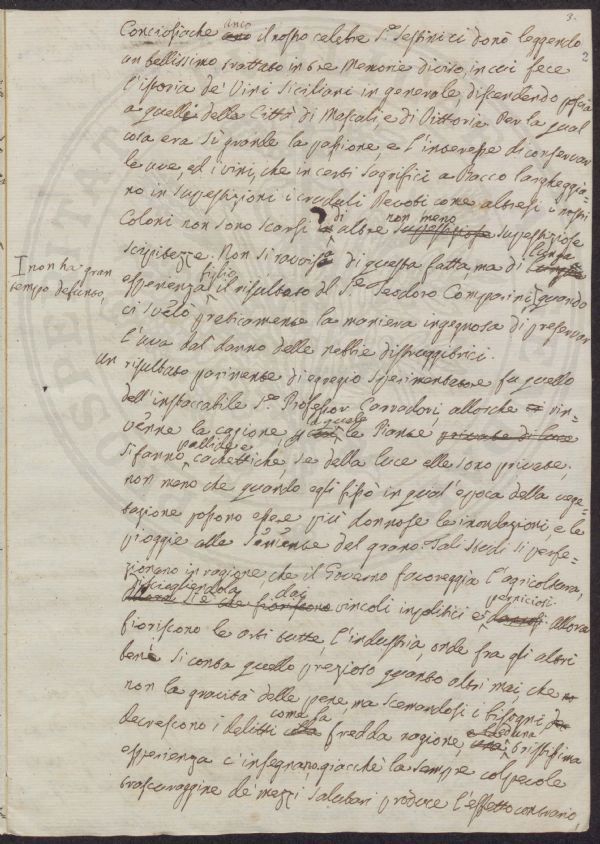 3.
2
anco
Conciosiache il nostro celebre Sr. Sestini ci donò leggendo
un bellissimo trattato in tre Memorie diviso, in cui fece
l'istoria de' Vini Siciliani in generale, discendendo poscia
a quelli della Città di Mascali, e di Vittoria. Per la qual
cosa era sì grande la passione, e l'interesse di conservar
le uve, ed i vini, che in certi sagrifici a Bacco largheggia-
no in superstizioni i creduli Devoti come altresì i nostri
di non meno
Coloni non sono scarsi altre superstiziose
scipitezze. Non si ravvisò di questa fatta, ma di
I non ha gran
tempo defunto,
esperienza figlio il risultato del Sr. Teodoro Comparini quando
ci svelò praticamente la maniera ingegnosa di preservar
l'uva dal danno delle nebbie distruggitrici.
Un risultato parimente di egregio sperimentatore fu quello
dell'instancabile Sr. Professor Carradori, allorche rin-
venne la cagione quale le Piante private di luce
pallide e
si fanno cachettiche, se della luce elle sono private;
non meno che quando egli fissò in qual'epoca della vege-
tazione possono essere più dannose le inondazioni, e le
pioggie alle semente del grano. Tali studi si perfe-
zionano in ragione che il Governo favoreggia l'agricoltura,
disciogliendola dai perniciosi
vincoli impolitici e allora
fioriscono le arti tutte, l'industria, onde fra gli altri
beni si conta quello prezioso quanto altri mai che
non la gravità delle pene, ma scemandosi i bisogni
come la
decrescono i delitti fredda ragione tristissima
esperienza c'insegnano, giacchè la sempre colpevole
trascuraggine de' mezzi salutari produce l'effetto contrario,